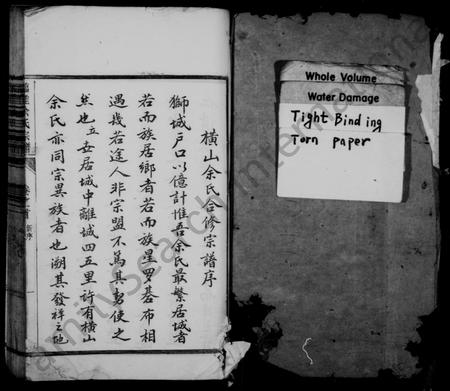 橫山余氏合修宗譜序
獅城戶口以億計惟吾余氏最繁居城者
若而族居鄉者若而族星羅碁布相
遇幾若途人非宗盟不篤其勢使之
然也立安居城中離城四五里許有橫山
余氏亦同宗異族者也溯其發祥之地
新序
Whole Volume
Water Damage
Tight Binding
Torn paper
FamilySearch International